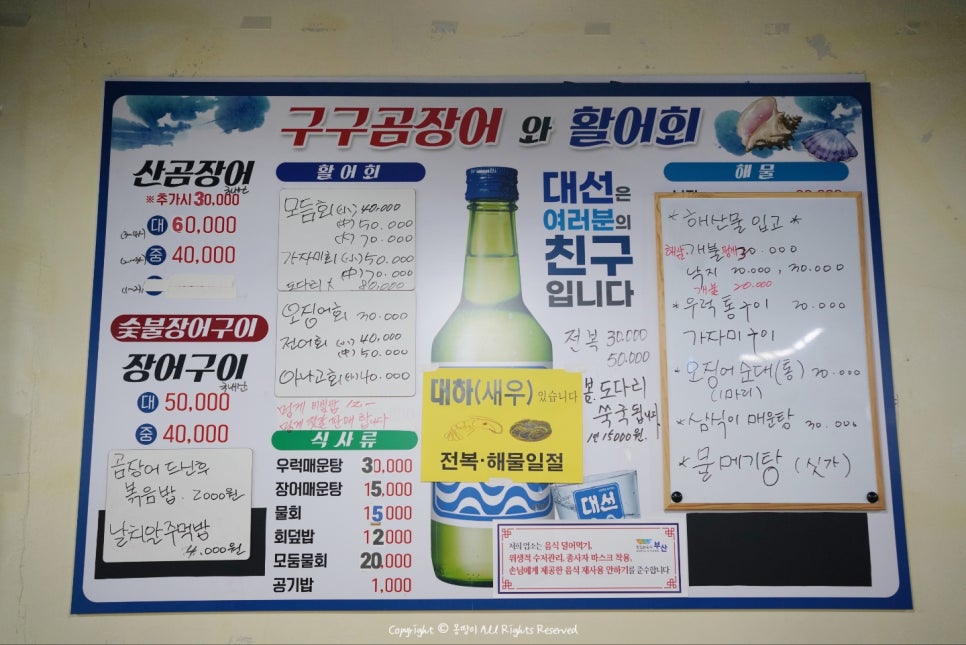 구구곰장어 와 활어회
산곰장어
국내산
※추가시 30,000
(3~4人) 대 60,000
중 40,000
(1~2人)
숯불장어구이
장어구이
국내산
대 50,000
중 40,000
곰장어 드신후
볶음밥. 2000원
날치알주먹밥
4.000원
활어회
모듬회 (小) 40,000
(中) 50.000
(大) 70.000
가자미회 (小) 50.000
(中) 70.000
도다리 大 80.000
오징어회 30.000
전어회 (小) 40,000
(中) 50.000
아나고회 (小) 40.000
멍게 비빔밥
멍게 젓갈 판매 합니다
식사류
우럭매운탕 30,000
장어매운탕 15,000
물회 15,000
회덮밥 12,000
모둠물회 20,000
공기밥 1,000
대선은
여러분의
친구
입니다
전복 30.000
50.000
봄.도다리
쑥국됩니다
15000원.
대하(새우) 있습니다
전복·해물일절
대선
저희 업소는 음식 덜어먹기,
위생적 수저관리, 종사자 마스크 착용,
손님에게 제공한 음식 재사용 안하기를 준수합니다
부산
해물
* 해산물 입고 *
개불 30.000
낙지 20.000, 30.000
개불 20.000
* 우럭 통구이 20.000
가자미구이
* 오징어순대(통) 20.000
(1마리)
* 삼식이 매운탕 30.000
* 물메기탕 (싯가)
Copyright © 몽땅이 All Rights Reserved